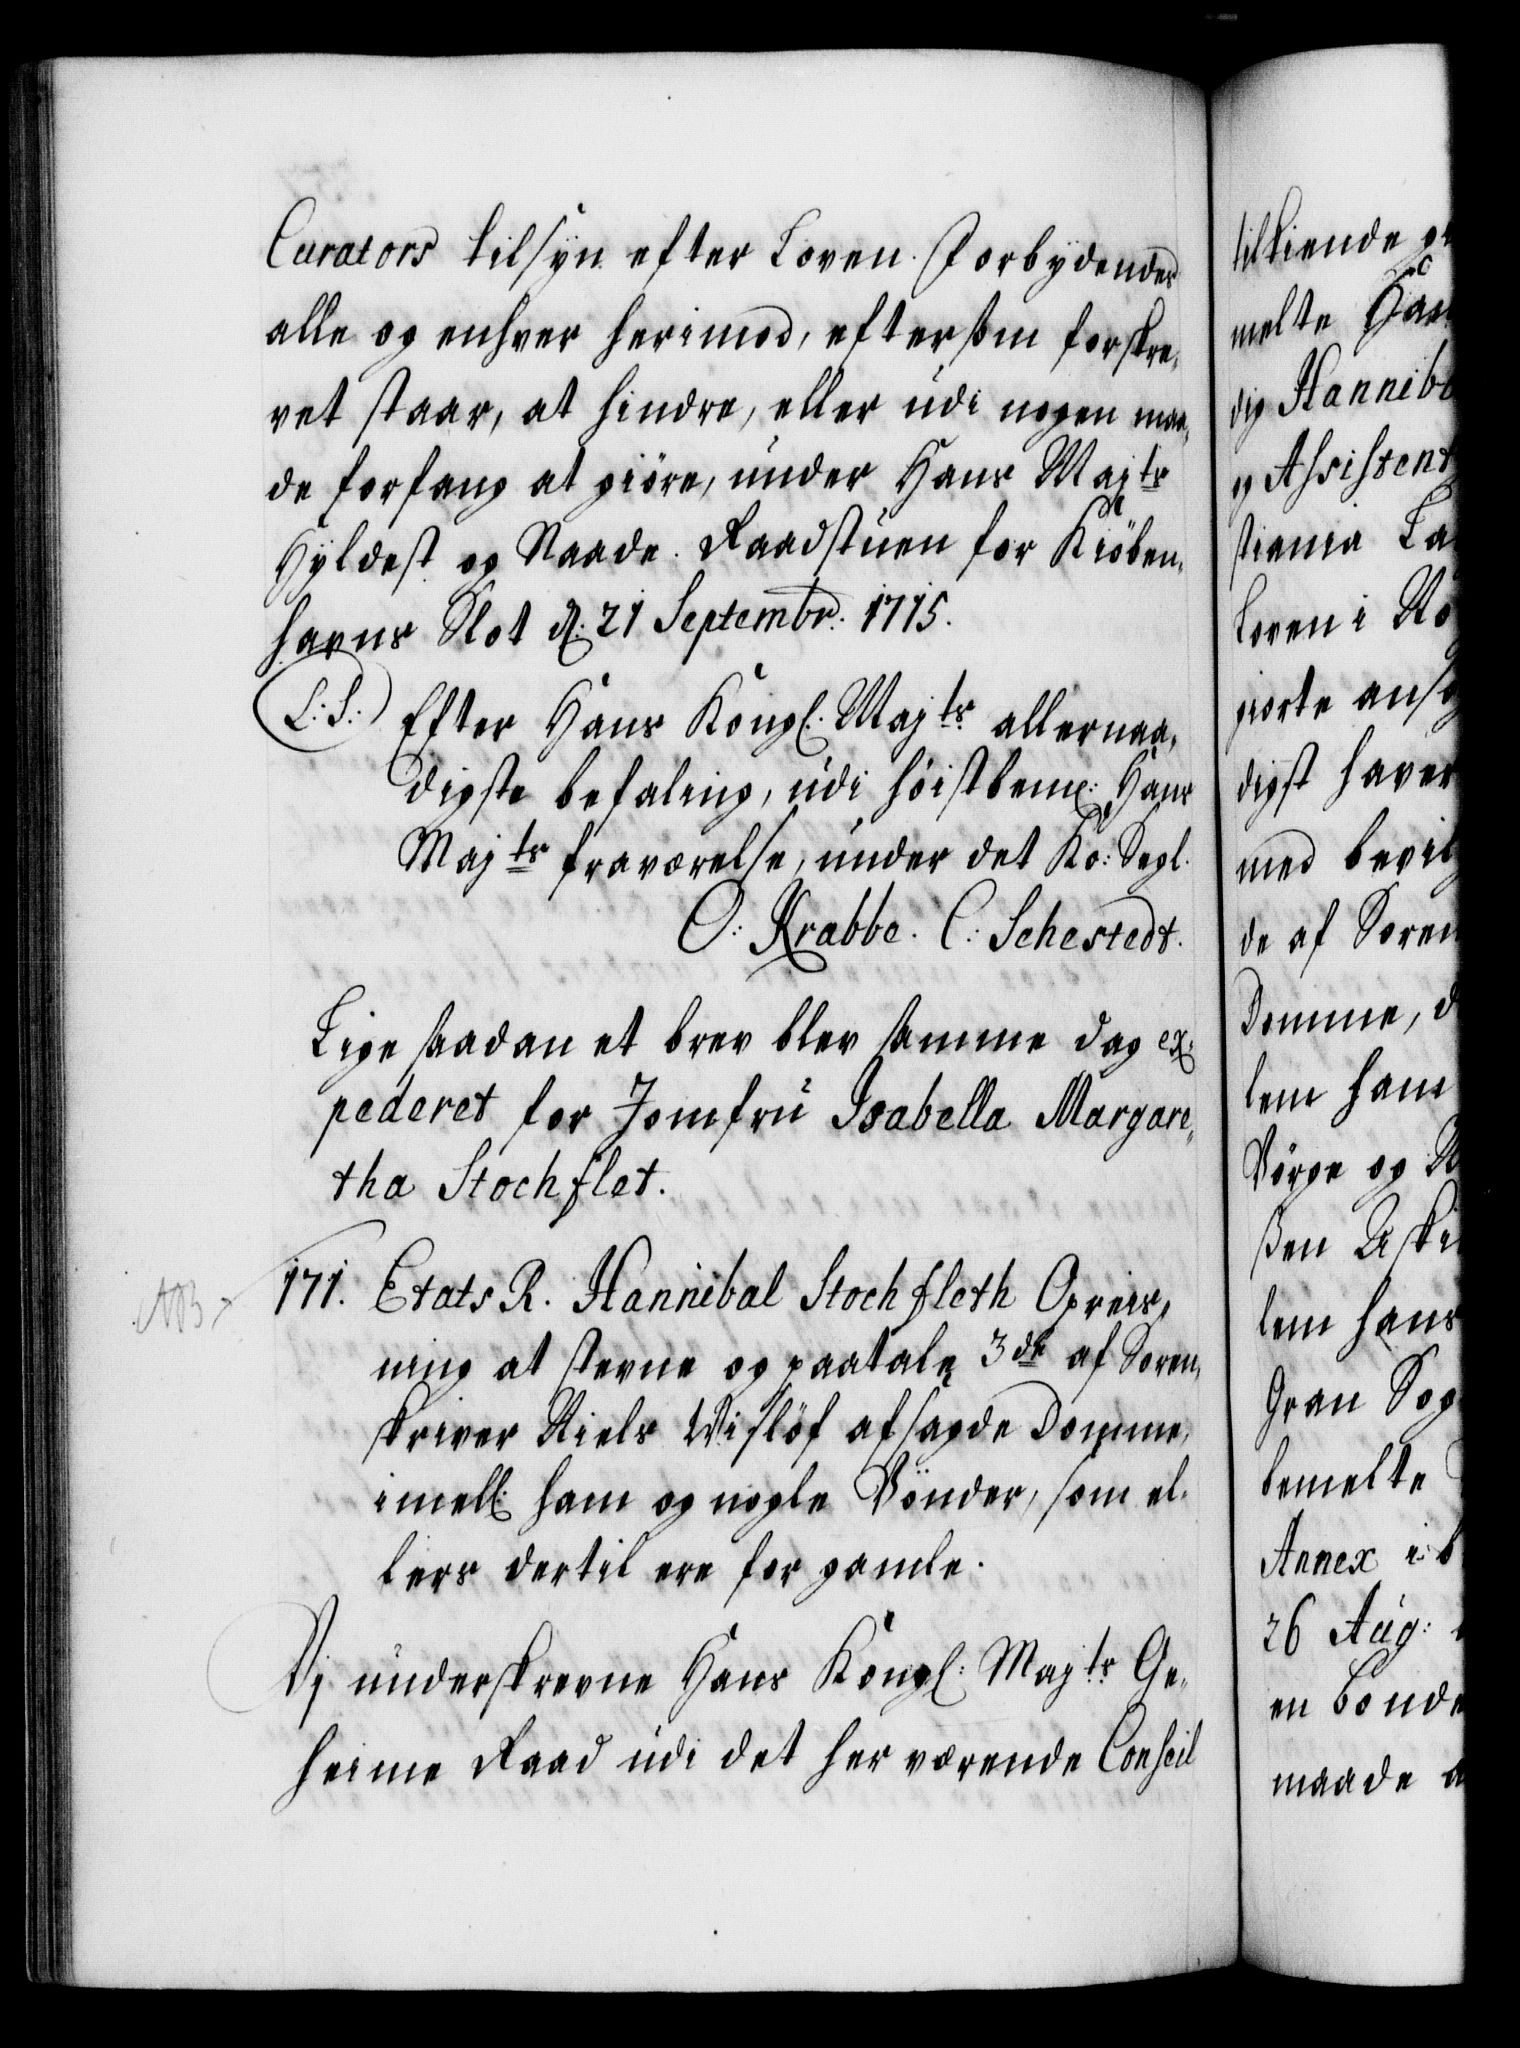 Curators tilsyn efter Loven. Forbydendes
alle og enhver herimod, eftersom forskre,
vet staar, at hindre, eller udi nogen maa,
de forfang at giöre, under Hans Majts
Hyldest og Naade. Raadstuen for Kiöben,
havns Slot d. 21 Septembr. 1715.
L: S: Efter Hans Kongl. Majts allernaa,
digste befaling, udi höistbem: Hans
Majts fraværelse, under det Ko: Segl.
O: Krabbe. C: Sehestedt.
Lige saadan et brev blev samme dag ex,
pederet for Jomfru Isabella Margare,
tha Stochflet.
NB 171. Etats R. Hannibal Stochfleth Opreis,
ning at stevne og paatale 3de af Soren,
skriver Niels Wislöf afsagde Domme,
imell: ham og nogle Bönder, som el,
lers dertil ere for gamle.
Vj underskrevne Hans Kongl: Majts Ge,
heime Raad udi det her værende Conseil
tilkiende g
melte
dig Hannib
og Assistent
stiania La
Loven i No
giorte ansög
digst haver
med bevil
de af Soren
Domme, d
lem ham
Börge og N
ßen
lem hans
Gran Sog
bemelte
Annex i b
26 Aug:
en Bonde
maade a